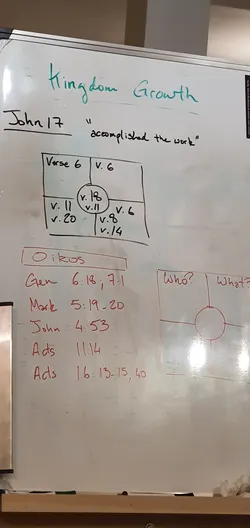 Kingdom Growth
John 17 "accomplished the work"
Verse 6 v. 6
v. 18
v. 11
v. 11 v. 6
v. 20 v. 8
v. 14
Oikos
Gen 6:18, 7:1
Mark 5:19-20
John 4:53
Acts 11:14
Acts 16:13-15, 40
Who? What?